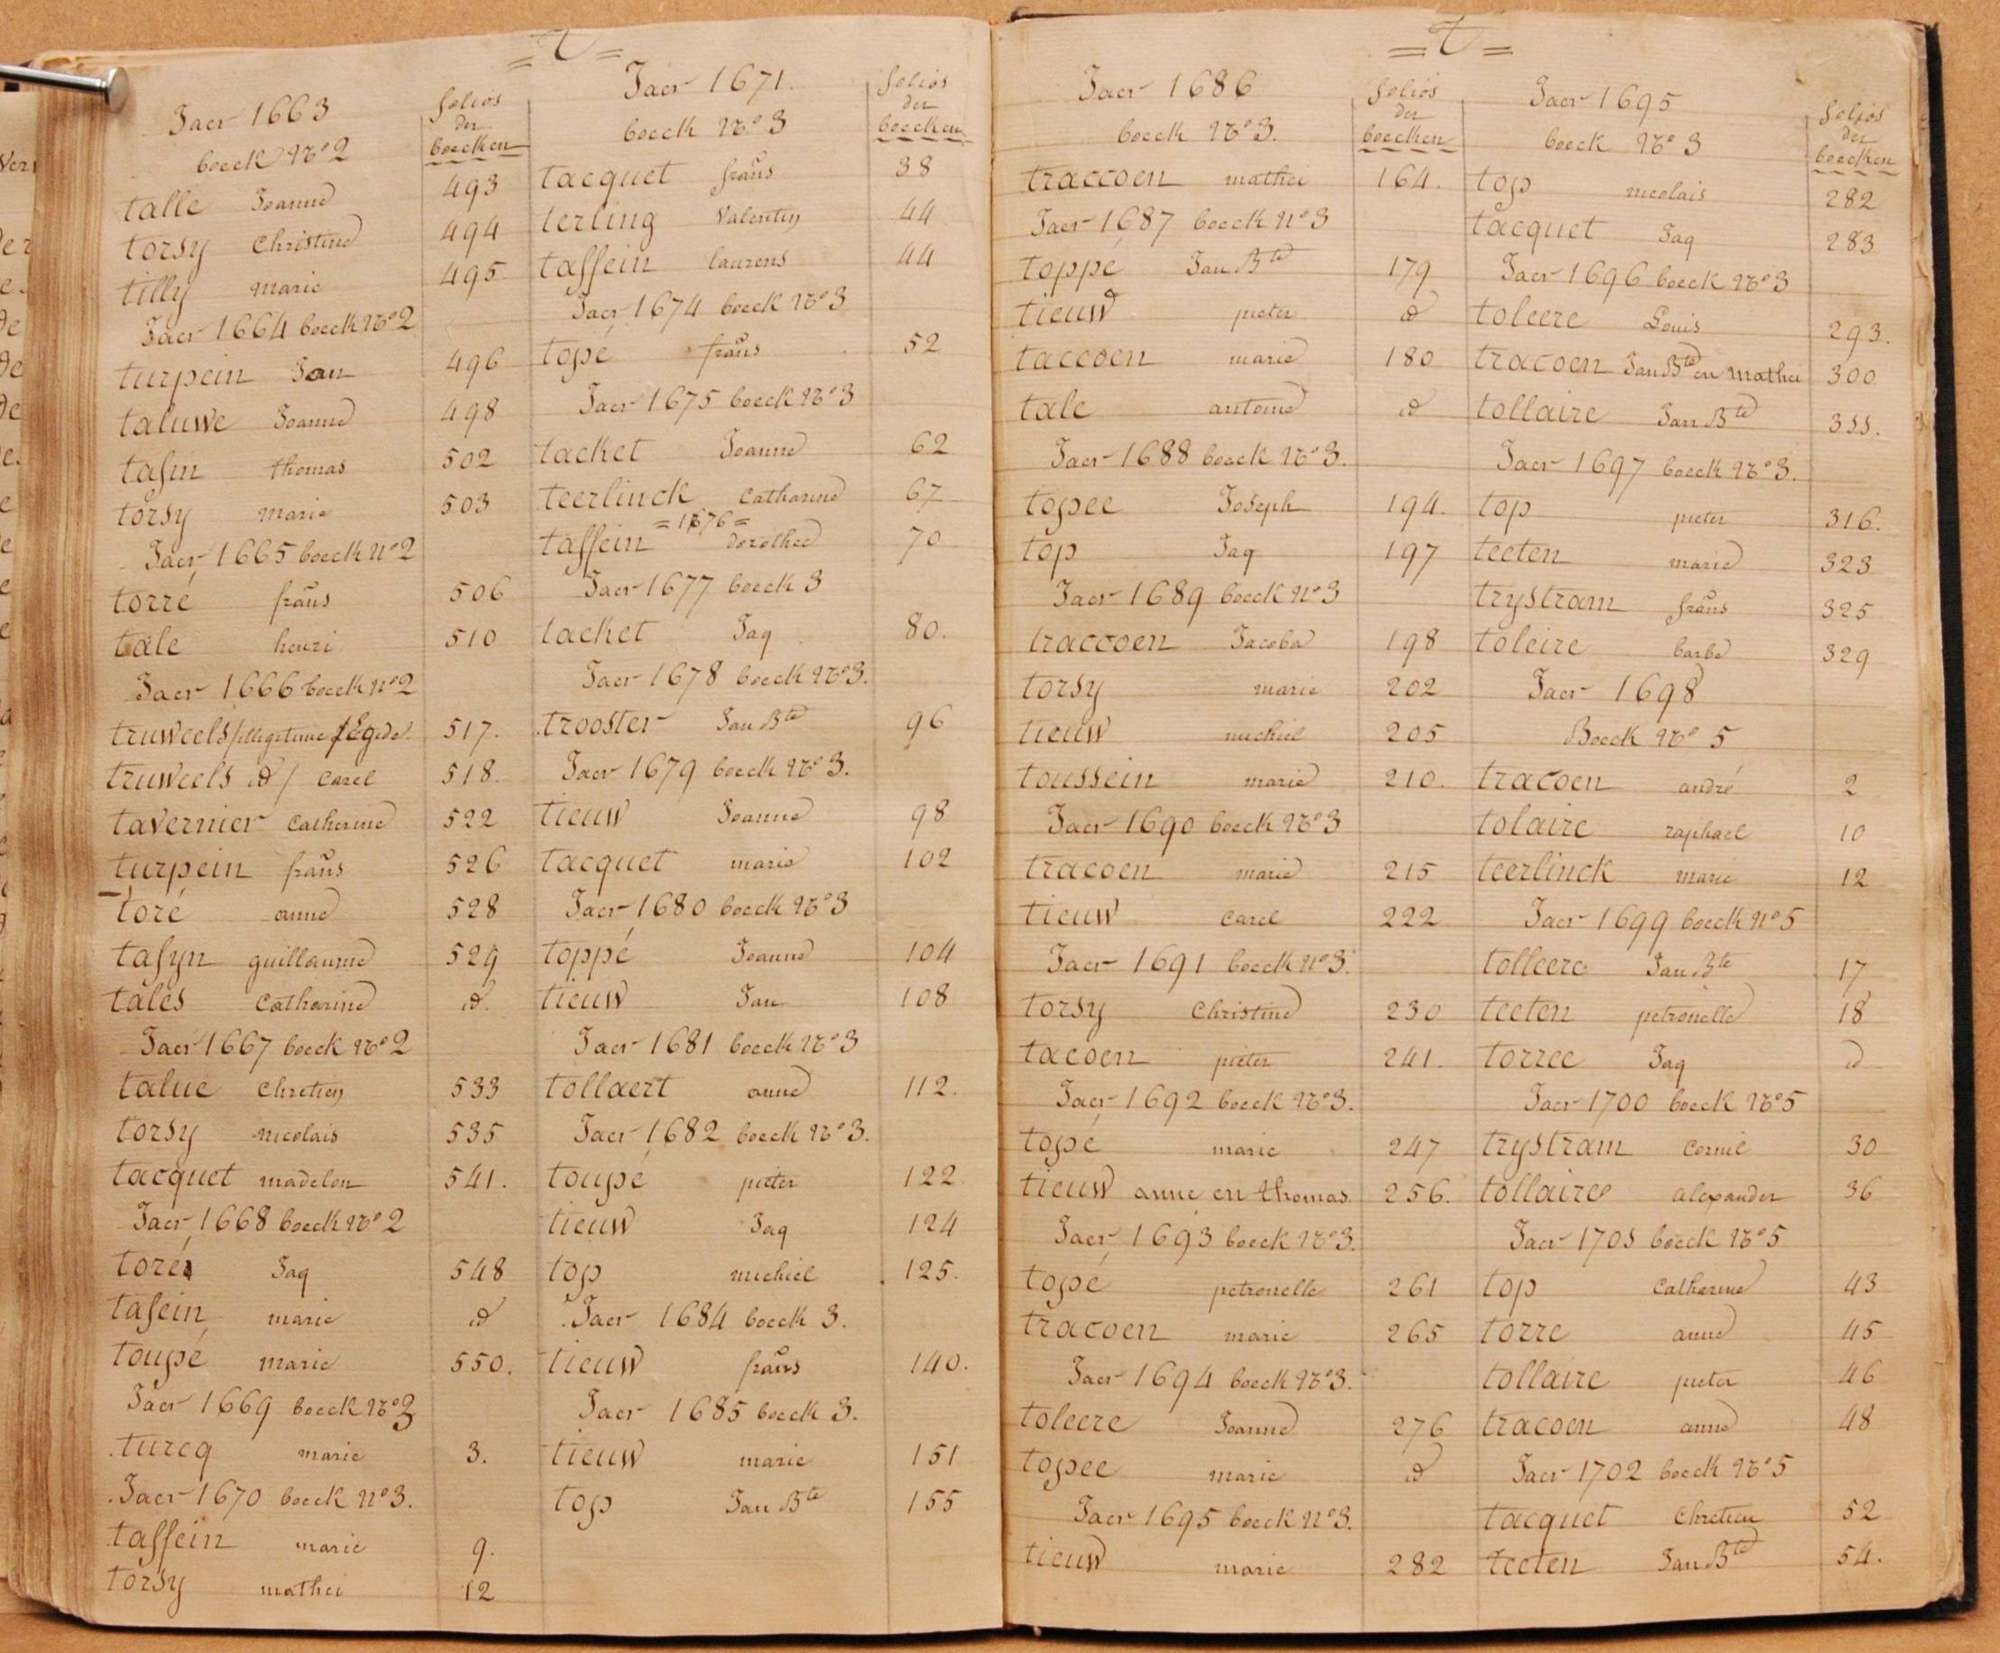 = t =
Jaer 1663
folios
der
boecken
boeck No 2
tallé Joanne 493
torsy Christine 494
tilly marie 495
Jaer 1664 boeck No 2
turpein Jan 496
taluwe Joanne 498
tasin thomas 502
torsy marie 503
Jaer 1665 boeck no 2
torré frans 506
tale henri 510
Jaer 1666 boeck no 2
truweels /illegetime / Egide 517.
truweels id / Carel 518.
tavernier Catherine 522
turpein frans 526
toré anne 528
tasyn guillaume 529
tales Catharine id.
Jaer 1667 boeck No 2
talue Chretien 533
torsy nicolais 535
tacquet madelen 541.
Jaer 1668 boeck No 2
toré Jaq 548
tasein marie id
toupé marie 550.
Jaer 1669 boeck No 3
turcq marie 3.
Jaer 1670 boeck no 3.
taffein marie 9.
torsy mathei 12
Jaer 1671.
folios
der
boecken
boeck No 3
tacquet frans 38
terling Valentin 44
taffein laurens 44
Jaer 1674 boeck No 3
topé frans 52
Jaer 1675 boeck No 3
tacket Joanne 62
teerlinck Catharine 67
= 1676 =
taffein dorothee 70
Jaer 1677 boeck 3
tacket Jaq 80.
Jaer 1678 boeck No 3.
trooster Jan Bte 96
Jaer 1679 boeck No 3.
tieuw Joanne 98
tacquet marie 102
Jaer 1680 boeck No 3
toppé Joanne 104
tieuw Jan 108
Jaer 1681 boeck No 3
tollaert anne 112.
Jaer 1682 boeck No 3.
toupé pieter 122
tieuw Jaq 124
top michiel 125.
Jaer 1684 boeck 3.
tieuw frans 140.
Jaer 1685 boeck 3.
tieuw marie 151
top Jan Bte 155
= t =
Jaer 1686
folios
der
boecken
boeck No 3.
traccoen mathei 164.
Jaer 1687 boeck no 3
toppé Jan Bte 179
tieuw pieter id
taccoen marie 180
tale antoine id
Jaer 1688 boeck No 3.
topee Joseph 194.
top Jaq 197
Jaer 1689 boeck no 3
traccoen Jacoba 198
torsy marie 202
tieuw michiel 205
toussein marie 210.
Jaer 1690 boeck No 3
tracoen marie 215
tieuw Carel 222
Jaer 1691 boeck no 3.
torsy Christine 230
tacoen pieter 241.
Jaer 1692 boeck No 3.
topé marie 247
tieuw anne en thomas 256.
Jaer 1693 boeck No 3.
topé petronelle 261
tracoen marie 265
Jaer 1694 boeck No 3.
toleere Joanne 276
topee marie id
Jaer 1695 boeck no 3.
tieuw marie 282
Jaer 1695
folios
der
boecken
boeck No 3
top nicolais 282
tacquet Jaq 283
Jaer 1696 boeck No 3
toleere Louis 293.
tracoen Jan Bte en mathei 300
tollaire Jan Bte 355.
Jaer 1697 boeck No 3.
top pieter 316.
teeten marie 323
trystram frans 325
toleire barbe 329
Jaer 1698
Boeck No 5
tracoen andré 2
tolaire raphael 10
teerlinck marie 12
Jaer 1699 boeck no 5
tolleere Jan Bte 17
teeten petronelle 18
torree Jaq id
Jaer 1700 boeck No 5
trystram Cornil 30
tollaire alexander 36
Jaer 1701 boeck No 5
top Catherine 43
torre anne 45
tollaire pieter 46
tracoen anne 48
Jaer 1702 boeck No 5
tacquet Chretien 52
teeten Jan Bte 54.